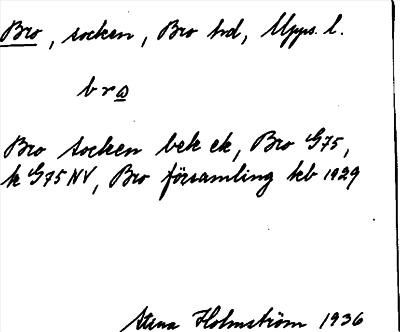 Bro, socken, Bro hd, Upps. l.
bro
Bro socken bek ek, Bro G75,
k G75 NV, Bro församling kb 1929
Stina Holmström 1936